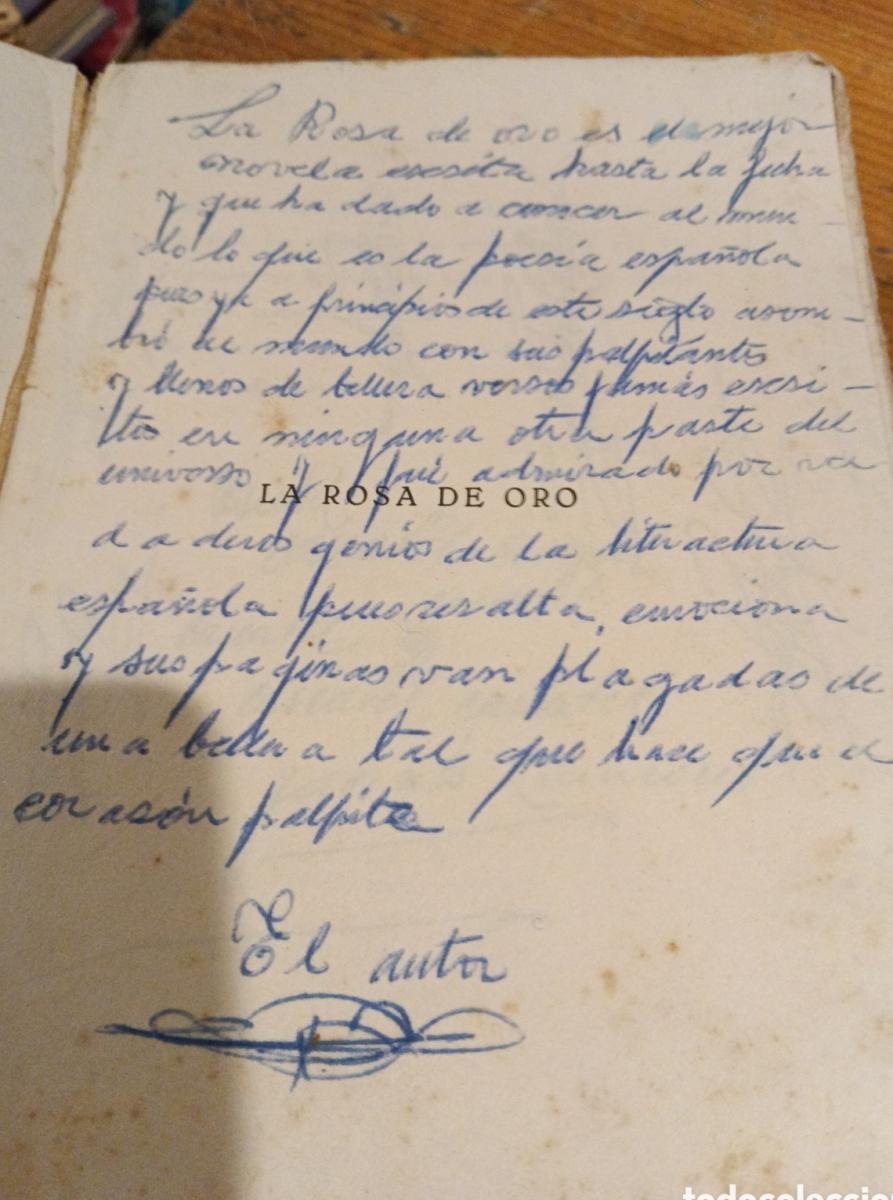 La Rosa de oro es la mejor
novela escrita hasta la fecha
y que ha dado a conocer al mun-
do lo que es la poesía española
pues ya a principios de este siglo asom-
bró al mundo con sus palpitantes
y llenos de belleza versos jamás escri-
tos en ninguna otra parte del
universo y fué admirado por ver
LA ROSA DE ORO
daderos genios de la literactura
española pues resalta, emociona
y sus paginas van plagadas de
una belleza tal que hace que el
corasón palpite
El autor
todocoleccion